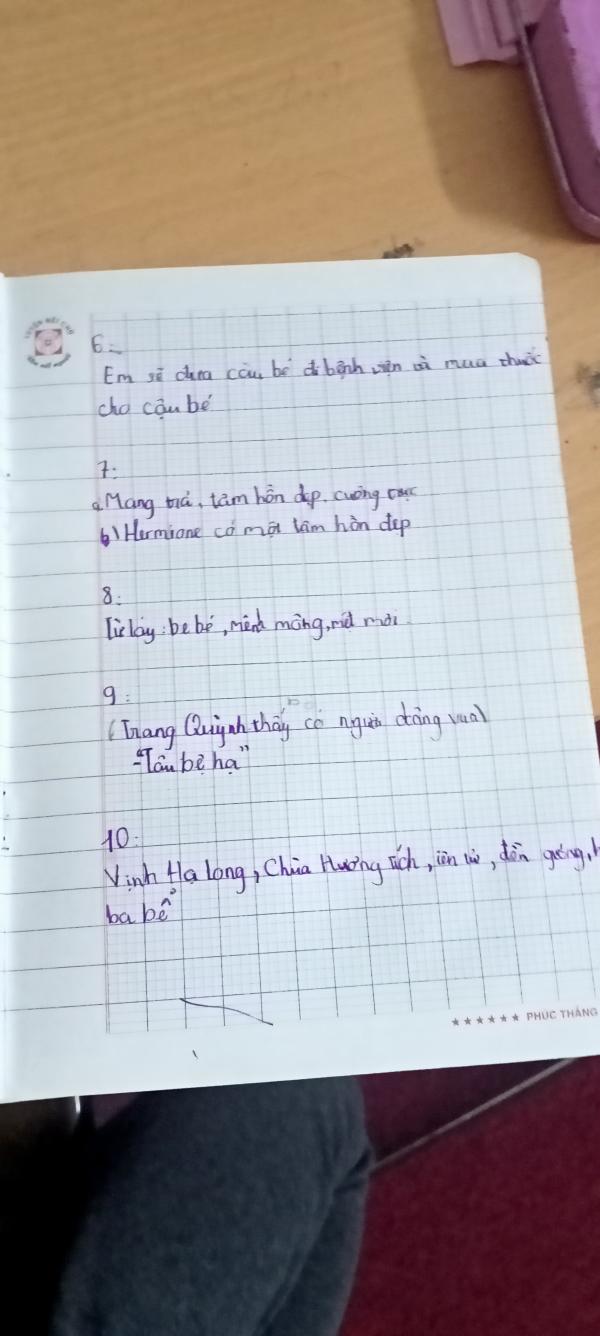 6:
Em sẽ đưa cậu bé đi bệnh viện và mua thuốc
cho cậu bé
7:
a. Mang trả, tâm hồn đẹp, cuồng
b) Hermione có một tâm hồn đẹp
8:
Từ láy: be bé, mênh mông, mệt mỏi.
9:
(Trang Quỳnh thấy có người đóng vua)
-"Tâu bệ hạ"
10:
Vịnh Hạ long, Chùa Hương tích, đền
ba bể
★★★★★★ PHÚC THẮNG